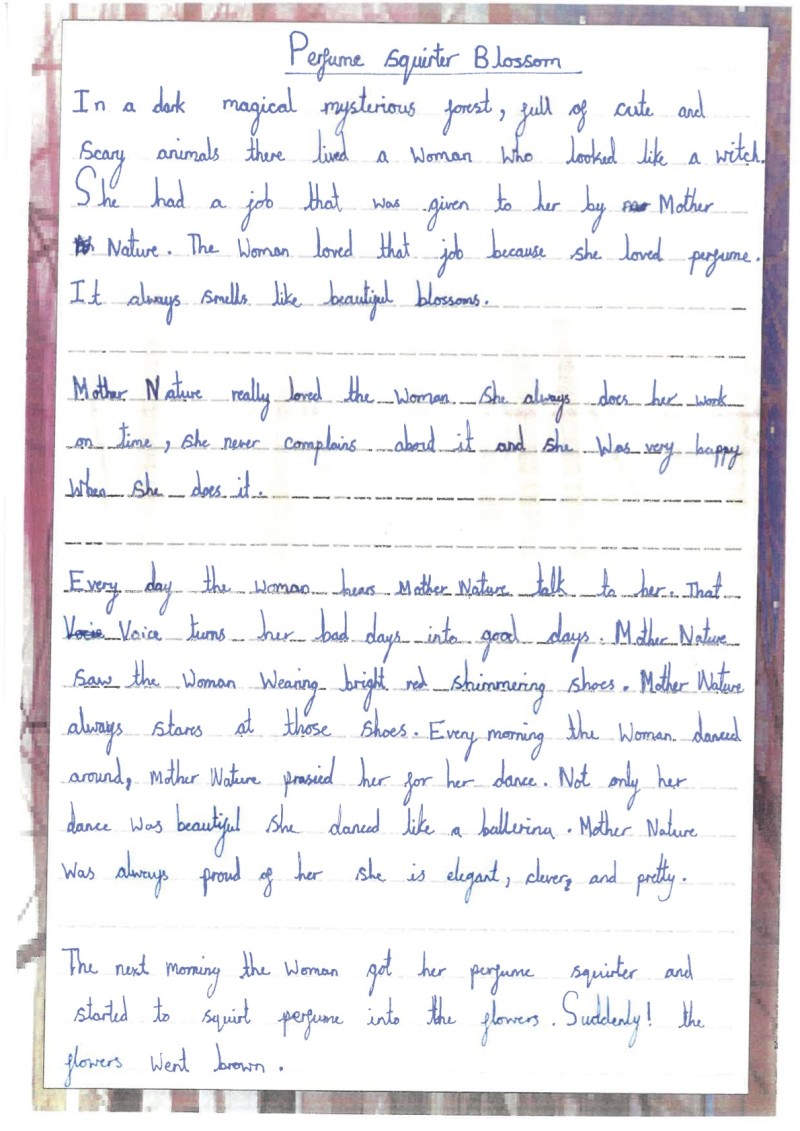 Perfume Squirter Blossom
In a dark magical mysterious forest, full of cute and
scary animals there lived a Woman Who looked like a witch.
She had a job that was given to her by Mother
Nature. The Woman loved that job because she loved perfume.
It always smells like beautiful blossoms.
Mother Nature really loved the Woman. She always does her work
on time, she never complains about it and she Was very happy
When she does it.
Every day the Woman hears Mother Nature talk to her. That
Vocie Voice turns her bad days into good days. Mother Nature
saw the Woman Wearing bright red shimmering shoes. Mother Nature
always stares at those shoes. Every morning the Woman danced
around, Mother Nature prasied her for her dance. Not only her
dance Was beautiful she danced like a ballerina. Mother Nature
Was always proud of her she is elegant, clever, and pretty.
The next morning the Woman got her perfume squirter and
started to squirt perfume into the flowers. Suddenly! the
flowers Went brown.